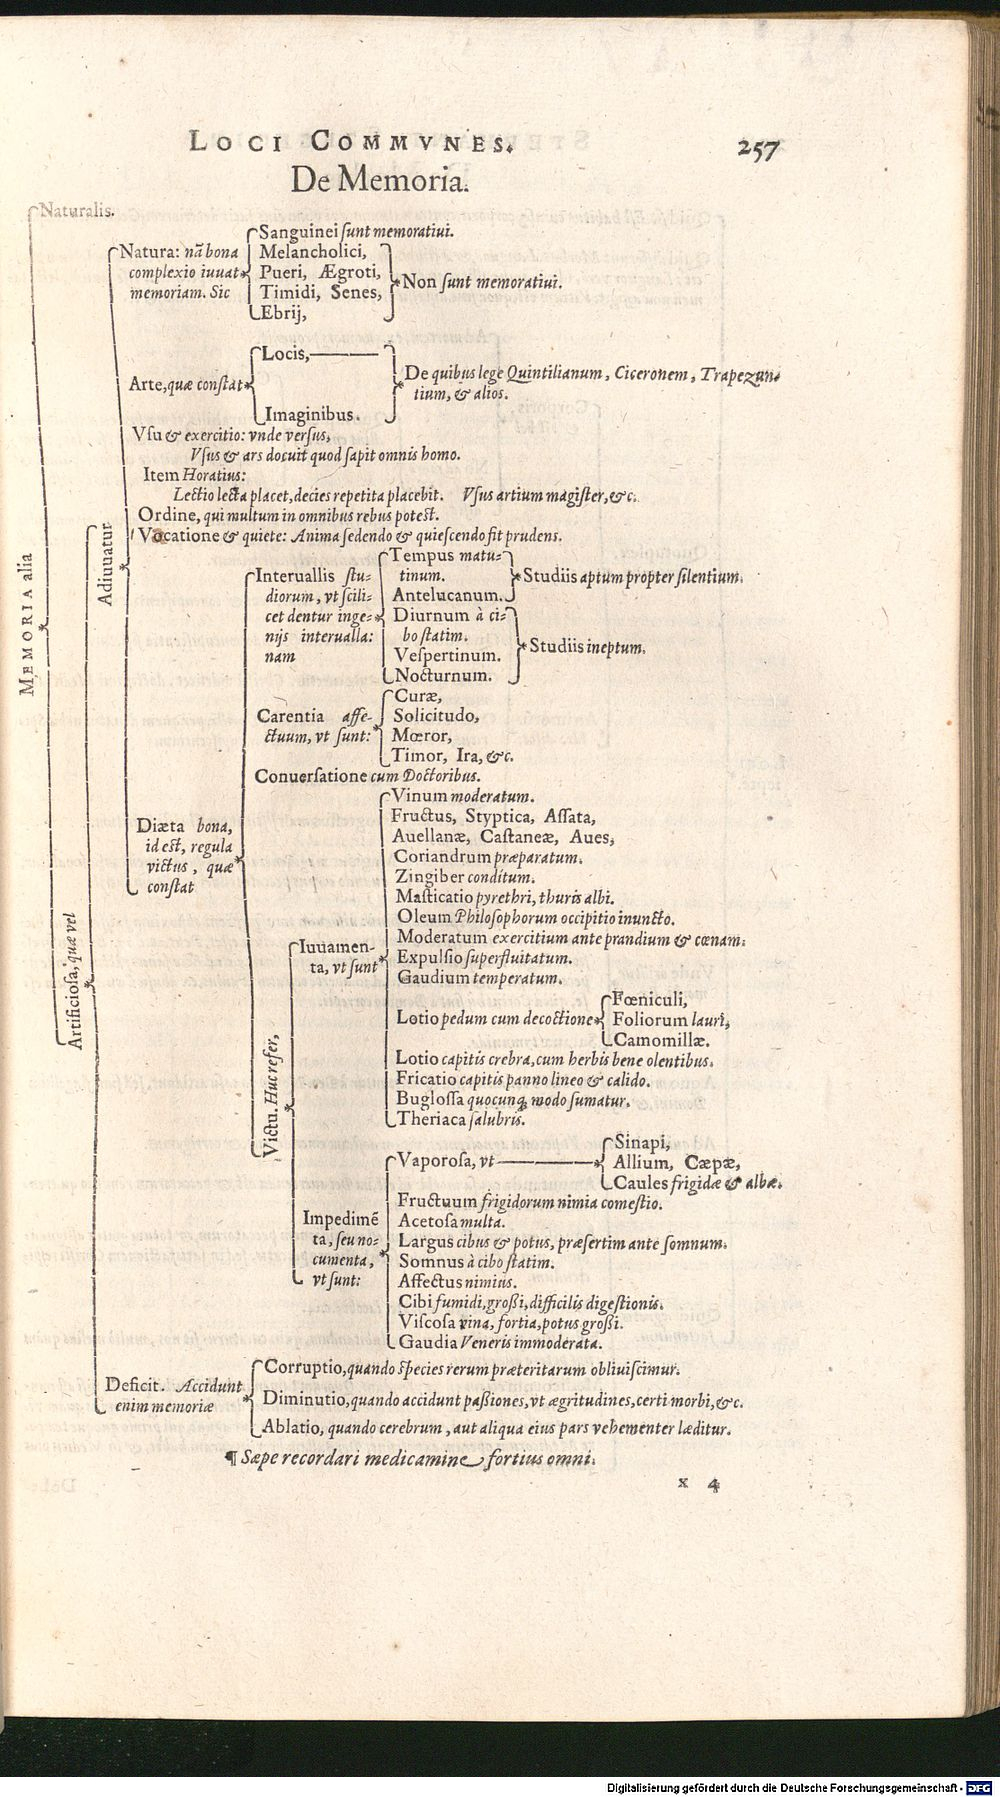 LOCI COMMVNES.
257
De Memoria.
MEMORIA alia
Naturalis.
Artificiosa, quæ vel
Adiuuatur
Natura: nā bona
complexio iuuat
memoriam. Sic
Sanguinei sunt memoratiui.
Melancholici,
Pueri, Ægroti,
Timidi, Senes,
Ebrij,
Non sunt memoratiui.
Arte, quæ constat
Locis,
Imaginibus.
De quibus lege Quintilianum, Ciceronem, Trapezun-
tium, & alios.
Vsu & exercitio: vnde versus,
Vsus & ars docuit quod sapit omnis homo.
Item Horatius:
Lectio lecta placet, decies repetita placebit. Vsus artium magister, &c.
Ordine, qui multum in omnibus rebus potest.
Vocatione & quiete: Anima sedendo & quiescendo fit prudens.
Diæta bona,
id est, regula
victus, quæ
constat
Interuallis stu-
diorum, vt scili-
cet dentur inge-
nijs interualla:
nam
Tempus matu-
tinum.
Antelucanum.
Studiis aptum propter silentium.
Diurnum à ci-
bo statim.
Vespertinum.
Nocturnum.
Studiis ineptum.
Carentia affe-
ctuum, vt sunt:
Curæ,
Solicitudo,
Mœror,
Timor, Ira, &c.
Conuersatione cum Doctoribus.
Victu. Huc refer,
Iuuamen-
ta, vt sunt
Vinum moderatum.
Fructus, Styptica, Assata,
Auellanæ, Castaneæ, Aues,
Coriandrum præparatum.
Zingiber conditum.
Masticatio pyrethri, thuris albi.
Oleum Philosophorum occipitio inuncto.
Moderatum exercitium ante prandium & cœnam.
Expulsio superfluitatum.
Gaudium temperatum.
Lotio pedum cum decoctione
Fœniculi,
Foliorum lauri,
Camomillæ.
Lotio capitis crebra, cum herbis bene olentibus.
Fricatio capitis panno lineo & calido.
Buglossa quocunq; modo sumatur.
Theriaca salubris.
Impedimē
ta, seu no-
cumenta,
vt sunt:
Vaporosa, vt
Sinapi,
Allium, Cæpæ,
Caules frigidæ & albæ.
Fructuum frigidorum nimia comestio.
Acetosa multa.
Largus cibus & potus, præsertim ante somnum.
Somnus à cibo statim.
Affectus nimius.
Cibi fumidi, grossi, difficilis digestionis.
Viscosa vina, fortia, potus grossi.
Gaudia Veneris immoderata.
Deficit. Accidunt
enim memoriæ
Corruptio, quando species rerum præteritarum obliuiscimur.
Diminutio, quando accidunt passiones, vt ægritudines, certi morbi, &c.
Ablatio, quando cerebrum, aut aliqua eius pars vehementer læditur.
¶ Sæpe recordari medicamine fortius omni.
x 4
Digitalisierung gefördert durch die Deutsche Forschungsgemeinschaft - DFG